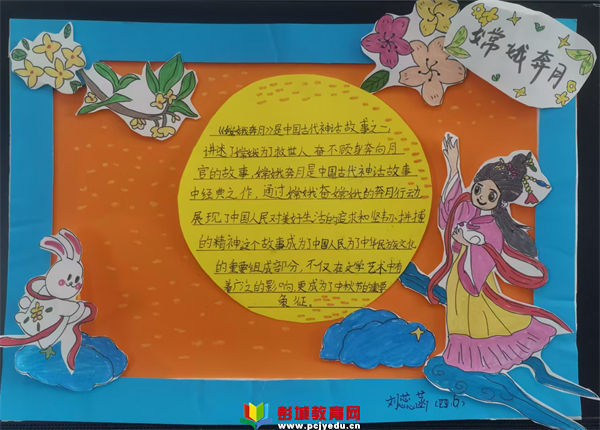 嫦娥奔月
《嫦娥奔月》是中国古代神话故事之一,
讲述了嫦娥为了救世人,奋不顾身奔向月
宫的故事,嫦娥奔月是中国古代神话故事
中经典之作,通过嫦娥奋嫦娥的奔月行动
展现了中国人民对美好生活的追求和坚韧、拼搏
的精神这个故事成为了中国人民为了中华民族文化
的重要组成部分,不仅在文学艺术中有
着广泛的影响,更成为了中秋节的重要
象征。
刘芯菡 (四.6)
彭城教育网
www.pcjyedu.cn